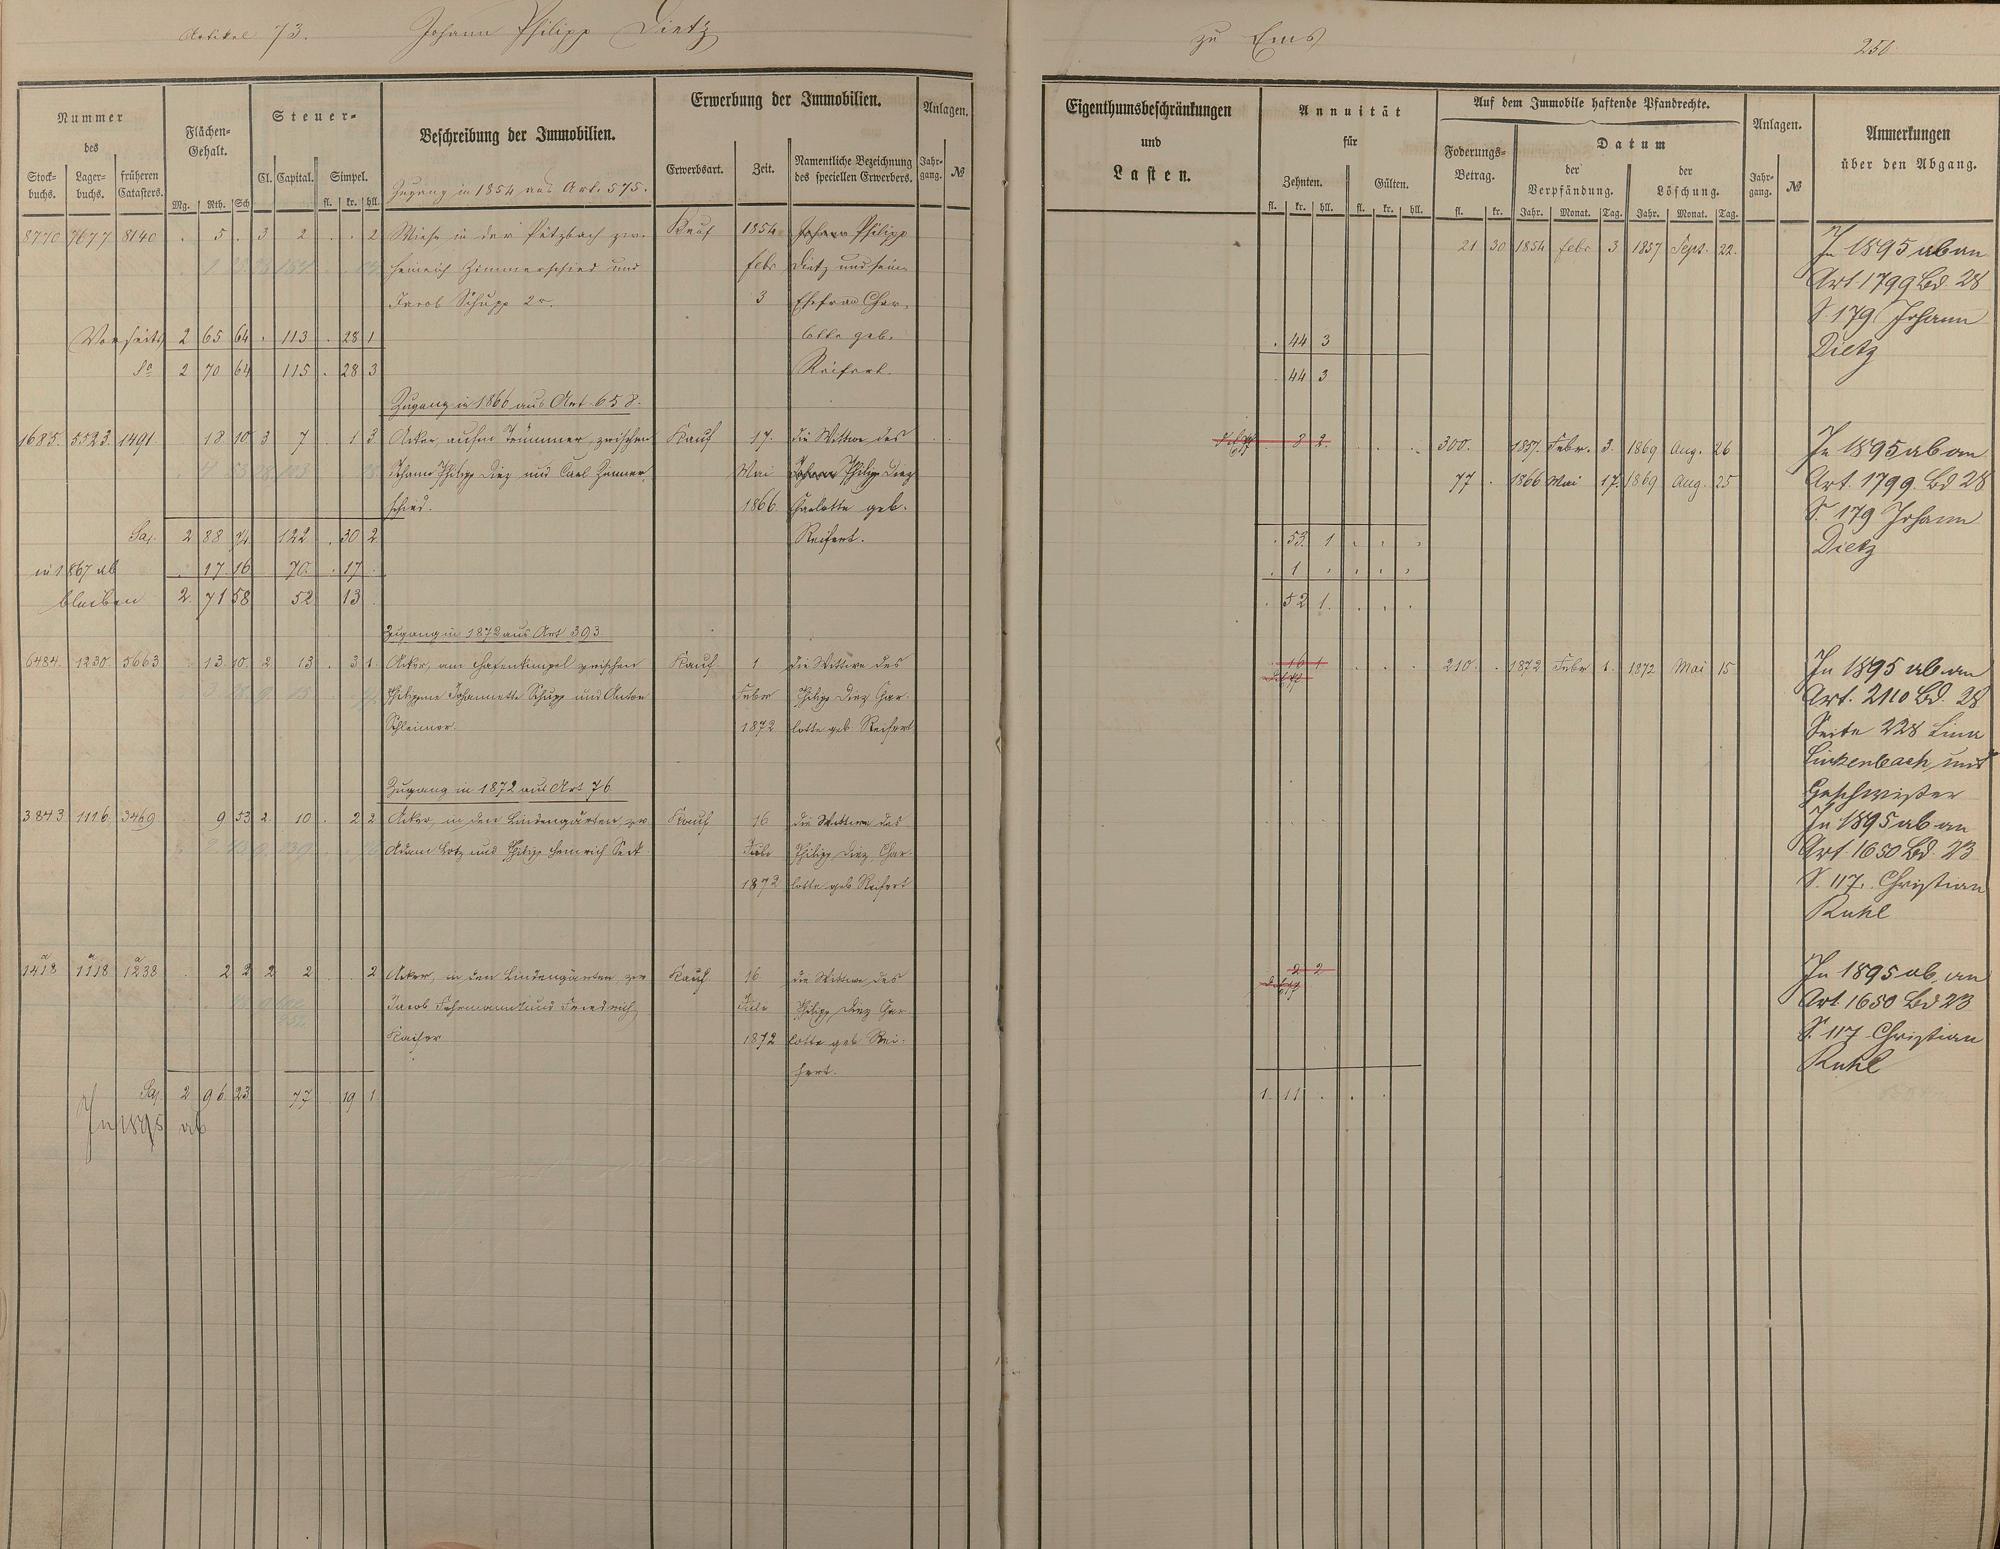 Artikel 73. Johann Philipp Dietz zu Ems 250.
Nummer
des
Stock-buchs. Lager-buchs. früheren Catasters.
Flächen-Gehalt.
Mg. Rth. Sch
Steuer-
Cl. Capital. Simpel.
fl. kr. hll.
Beschreibung der Immobilien.
Erwerbung der Immobilien.
Erwerbsart. Zeit. Namentliche Bezeichnung des speciellen Erwerbers.
Anlagen.
Jahr-gang. №
Eigenthumsbeschränkungen
und
Lasten.
Annuität
für
Zehnten. Gülten.
fl. kr. hll. fl. kr. hll.
Auf dem Immobile haftende Pfandrechte.
Foderungs-Betrag. Datum
der Verpfändung. der Löschung.
fl. kr. Jahr. Monat. Tag. Jahr. Monat. Tag.
Anlagen.
Jahr-gang. №
Anmerkungen
über den Abgang.
Zugang in 1854 aus Art. 575.
8770 7677 8140 . 5 . 3 2 . . 2 Wiese in der Pützbach zw. Kauf 1854 Johann Philipp 21 30 1854 Febr 3 1857 Sept. 22. In 1895 ab an
Heinrich Zimmerschied und Febr Dietz und seine Art. 1799 Bd. 28
Jacob Schupp 2r. 3 Ehefrau Char- S. 179 Johann
Vorseits 2 65 64 . 113 . 28 1 lotte geb. . 44 3 Dietz
Sa 2 70 64 115 . 28 3 Reifert. . 44 3
Zugang in 1866 aus Art. 658.
1685. 5523. 1491. 18 10 3 7 . 1 3 Acker, aufm Trümmer, zwischen Kauf 17. die Wittwe des 8 2. 300. 1857. Febr. 3. 1869 Aug. 26 In 1895 ab an
Johann Philipp Diez und Carl Zimmer- Mai Johann Philipp Diez 77 . 1866 Mai 17. 1869 Aug. 25 Art. 1799. Bd 28
schied. 1866. Charlotte geb. S. 179 Johann
Sa. 2 88 74 122 . 30 2 Reifert. . 53. 1 Dietz
in 1867 ab . 17 16 70. . 17 . 1
bleiben 2. 71 58 52 13 . . 52 1.
Zugang in 1872 aus Art 393
6484. 1230. 5663 13. 10. 2 13 . 3 1. Acker, am Hafenkimpel zwischen Kauf 1 die Wittwe des 16 1 210. . 1872 Febr 1. 1872 Mai 15 In 1895 ab an
Philippine Johannette Schupp und Anton Febr Philipp Diez Char- Art. 2110 Bd. 28
Schleimer. 1872 lotte geb Reifert Seite 228 Lina
Linkenbach und
Zugang in 1872 aus Art 76 Geschwister
3843 1116. 3469 9 53 2. 10 . 2 2 Acker, in den Lindengärten, zw Kauf 16 die Wittwe des In 1895 ab an
Adam Lotz und Philipp Heinrich Seck Juli Philipp Diez, Char- Art 1650 Bd. 23
1872 lotte geb Reifert S. 117. Christian
Ruhl
1418 a 1118 a 1238 a 2 2 2 2 . . 2 Acker, in den Lindengärten, zw Kauf 16 die Wittwe des 2 2 In 1895 ab an
Jacob Fuhrmann und Friedrich Juli Philipp Diez Char- Art 1650 Bd 23
Kaiser 1872 lotte geb Rei- S. 117 Christian
fert. Ruhl
Sa. 2 96. 23 77 . 19 1 1. 11 .
In 1895 ab